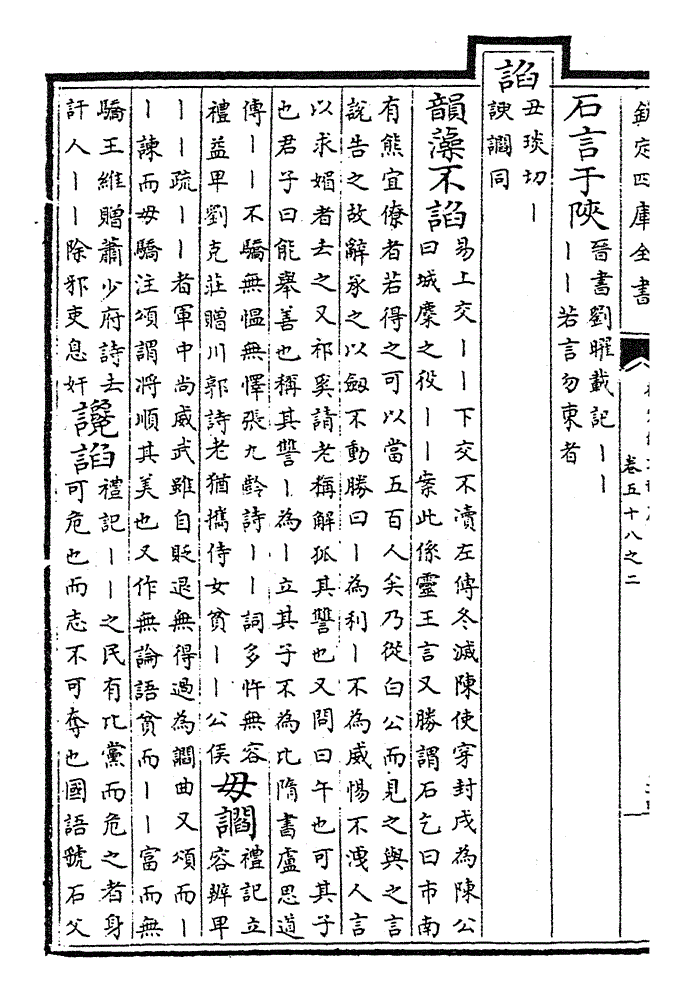 欽定四庫全書
卷五十八之二
石言于陝
晉書劉曜載記丨丨
丨丨若言勿東者
諂
丑琰切丨
諛讇同
韻藻不諂
易上交丨丨下交不瀆左傳冬滅陳使穿封戌為陳公
曰城麇之役丨丨案此係靈王言又勝謂石乞曰市南
有熊宜僚者若得之可以當五百人矣乃從白公而見之與之言
說告之故辭承之以劒不動勝曰丨為利丨不為威惕不洩人言
以求媚者去之又祁奚請老稱解狐其讐也又問曰午也可其子
也君子曰能舉善也稱其讐丨為丨立其子不為比隋書盧思道
傳丨丨不驕無慍無懌張九齡詩丨丨詞多忤無容
禮益卑劉克莊贈川郭詩老猶攜侍女貧丨丨公侯
毋讇
禮記立
容辨卑
丨丨疏丨丨者軍中尚威武雖自貶退無得過為讇曲又頌而丨
丨諫而毋驕注頌謂将順其美也又作無論語貧而丨丨富而無
驕王維贈蕭少府詩去
訐人丨丨除邪吏息奸
讒諂
禮記丨丨之民有比黨而危之者身
可危也而志不可奪也國語虢石父